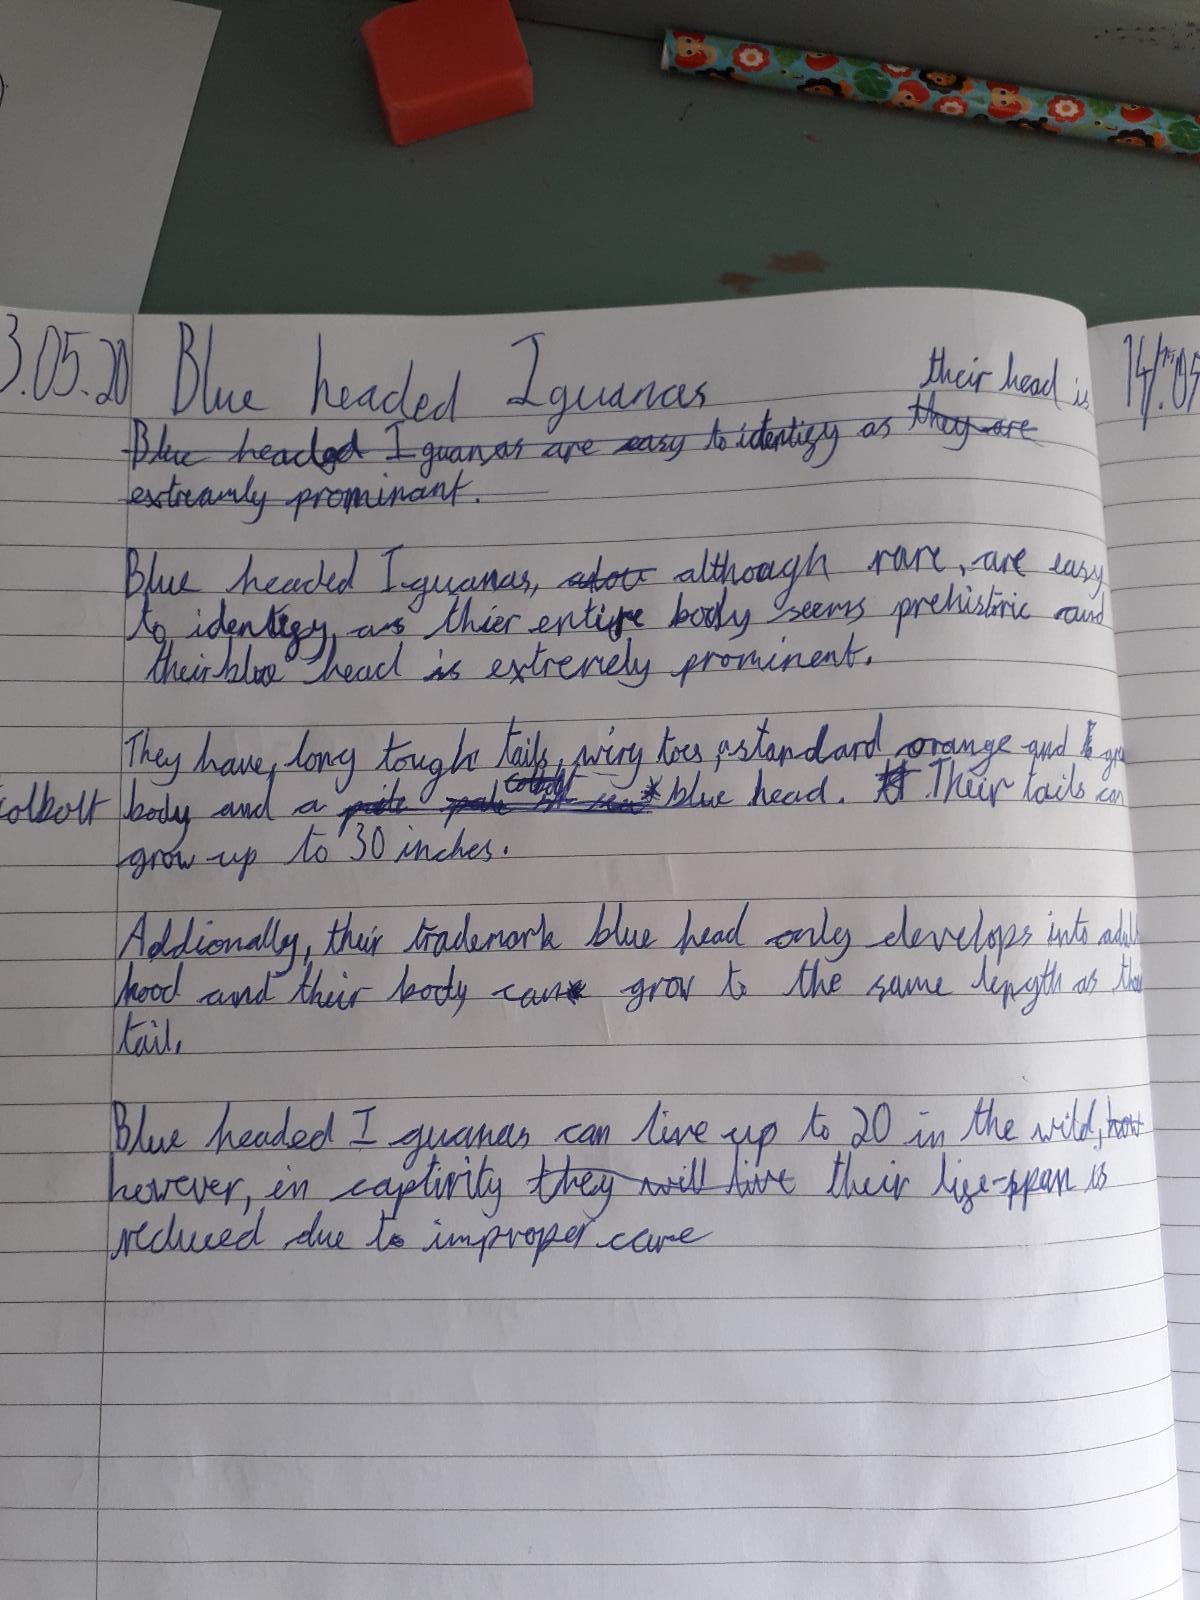 3.05.20 Blue headed Iguanas
their head is
Blue headed Iguanas are easy to identify as they are
extreamly prominant.
Blue headed Iguanas, although rare, are easy
to identify, as thier entire body seems prehistoric and
their blue head is extremely prominent.
They have, long tough tails, wiry toes, a standard orange and
colbolt body and a pale colbolt * blue head. Their tails can
grow up to 30 inches.
Addionally, their trademark blue head only develops into adult
hood and their body can grow to the same length as
tail.
Blue headed Iguanas can live up to 20 in the wild, how
however, in captivity they will live their life-span is
reduced due to improper care
14/.05